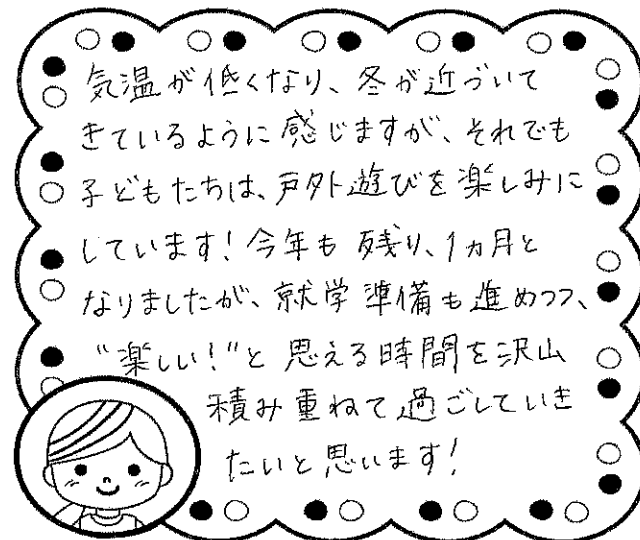 気温が低くなり、冬が近づいて
きているように感じますが、それでも
子どもたちは、戸外遊びを楽しみに
しています！今年も残り、1ヵ月と
なりましたが、就学準備も進めつつ、
“楽しい！”と思える時間を沢山
積み重ねて過ごしていき
たいと思います！